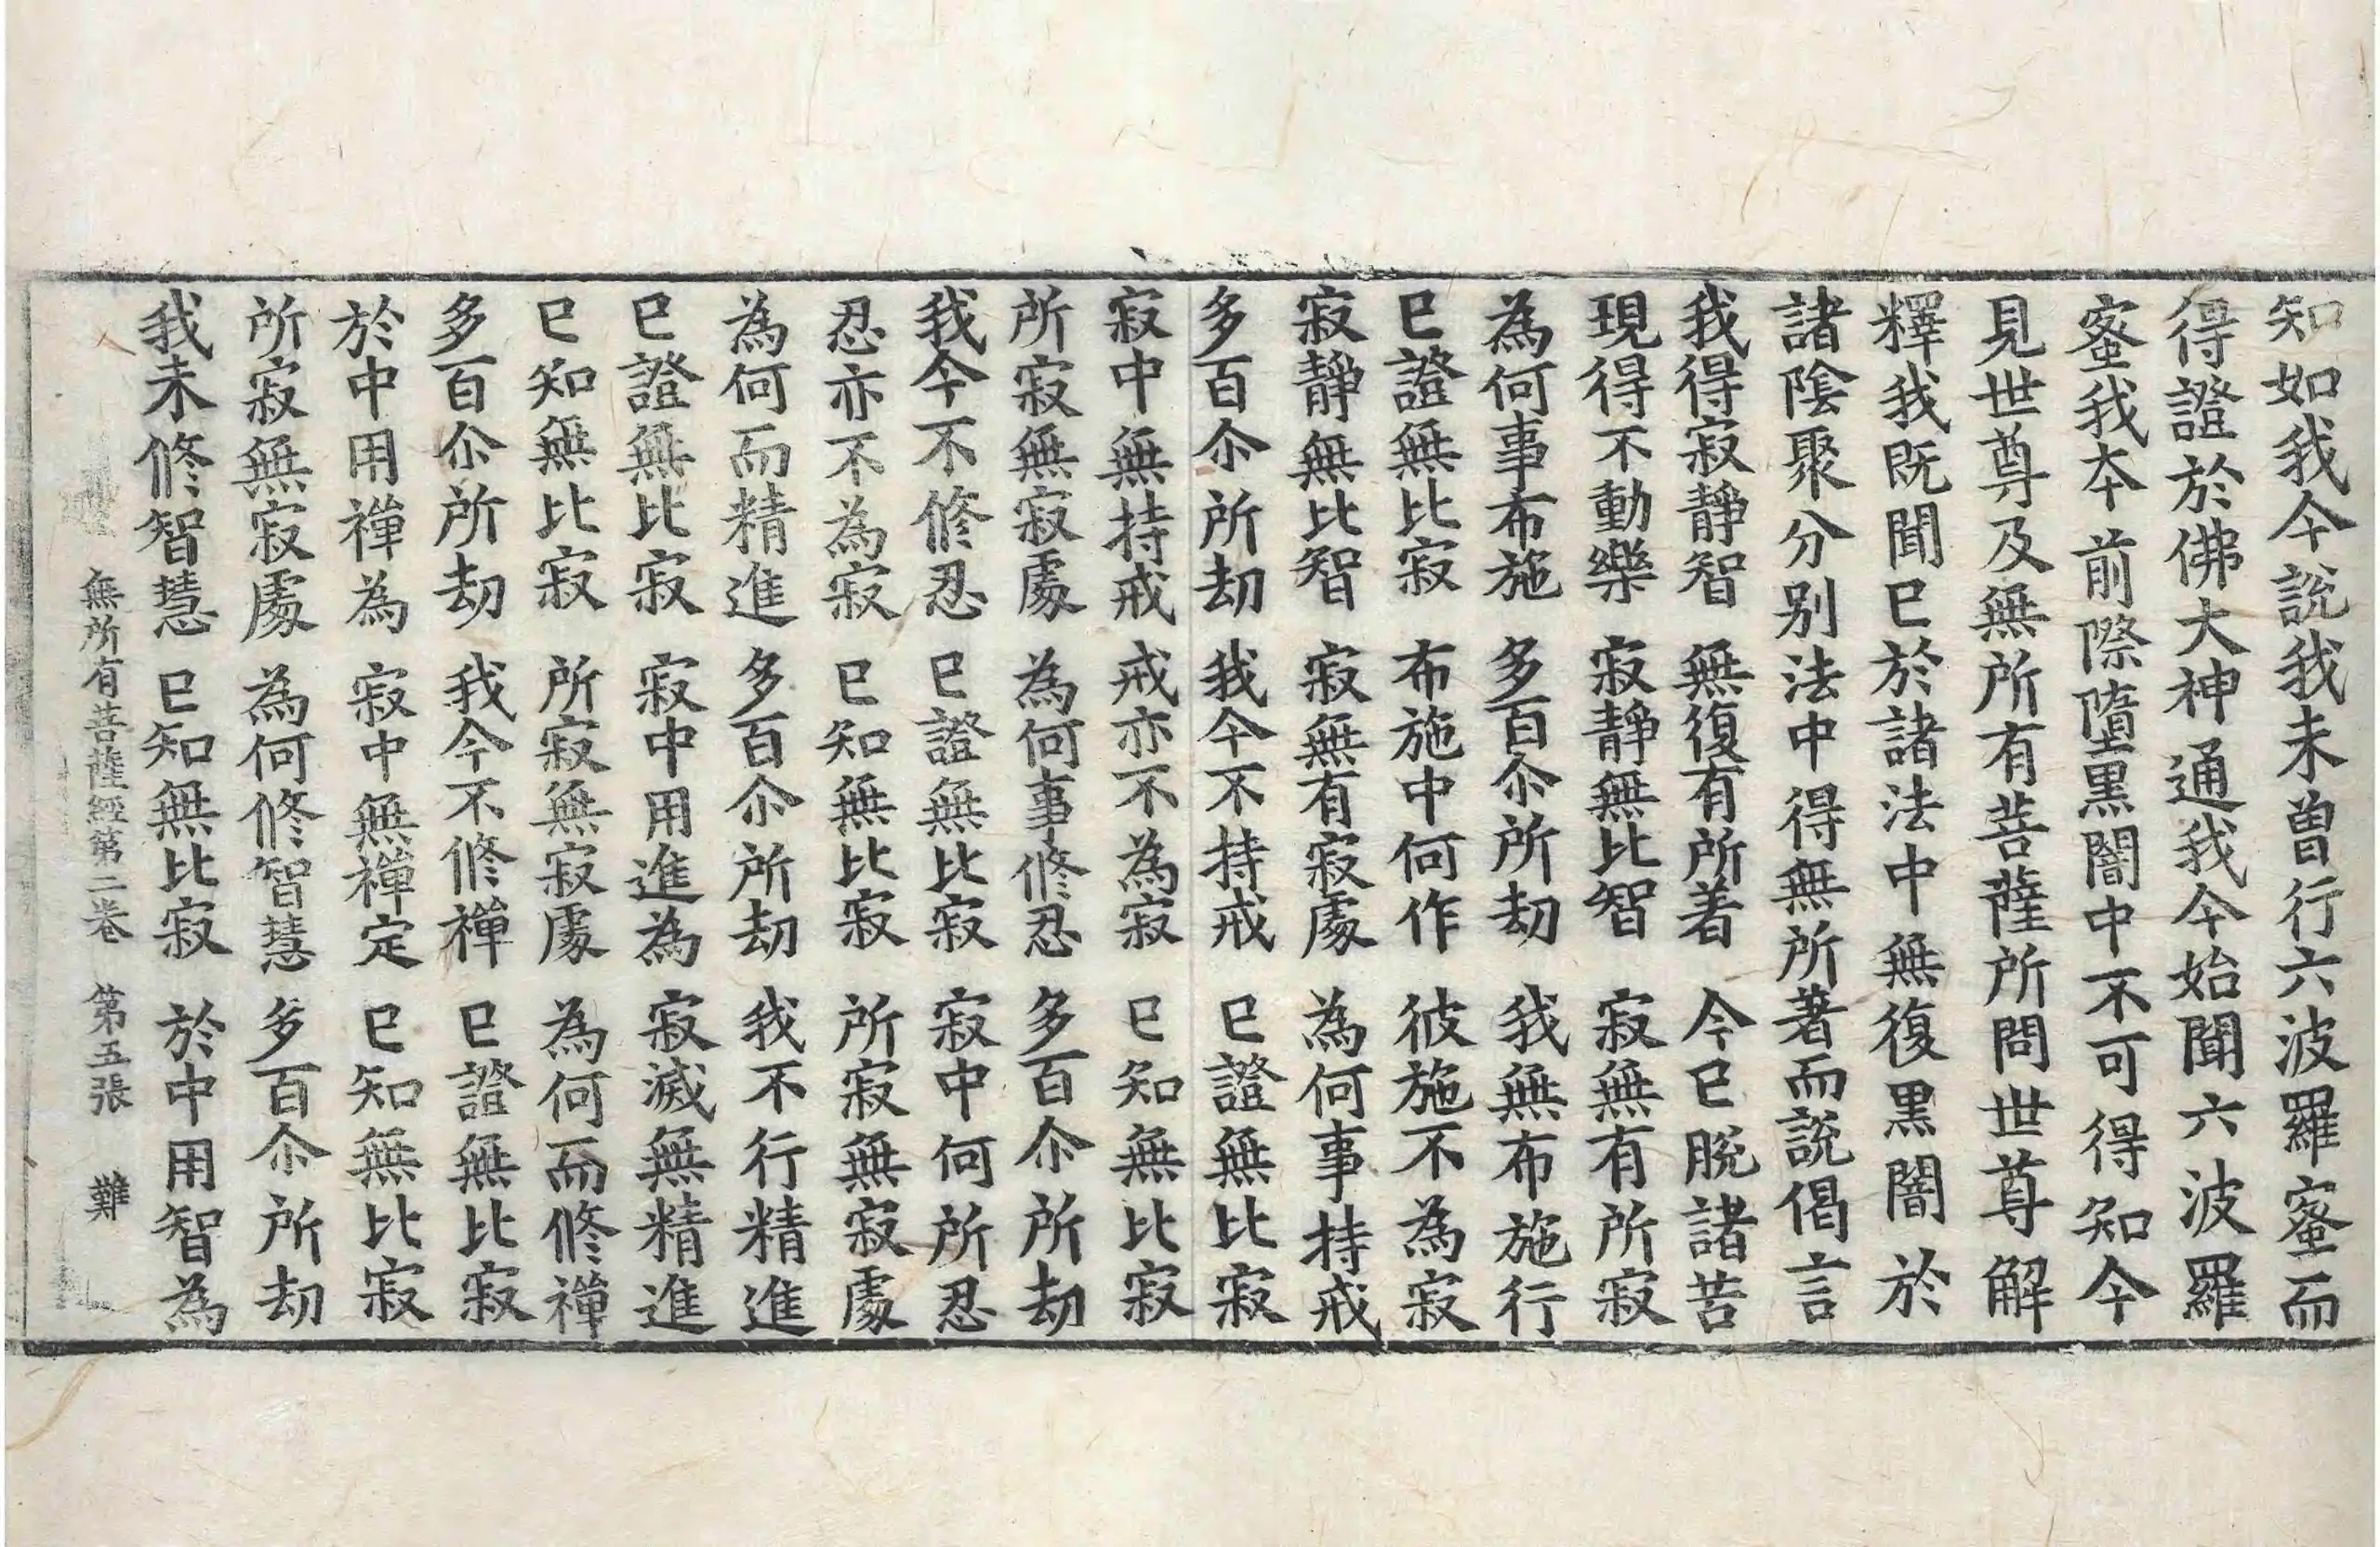 知如我今說我未曾行六波羅蜜而
得證於佛大神通我今始聞六波羅
蜜我夲前際墮黒闇中不可得知今
見世尊及無所有菩薩所問世尊解
釋我既聞已於諸法中無復黒闇於
諸陰聚分别法中得無所著而説偈言
我得寂静智　無復有所著　今已脫諸苦
現得不動樂　寂靜無比智　寂無有所寂
為何事布施　多百尒所劫　我無布施行
已證無比寂　布施中何作　彼施不為寂
寂靜無比智　寂無有寂處　為何事持戒
多百尒所劫　我今不持戒　已證無比寂
寂中無持戒　戒亦不為寂　已知無比寂
所寂無寂處　為何事修忍　多百尒所劫
我今不修忍　已證無比寂　寂中何所忍
忍亦不為寂　已知無比寂　所寂無寂處
為何而精進　多百尒所劫　我不行精進
已證無比寂　寂中用進為　寂滅無精進
已知無比寂　所寂無寂處　為何而修禪
多百尒所劫　我今不修禪　已證無比寂
於中用禪為　寂中無禪定　已知無比寂
所寂無寂處　為何修智慧　多百尒所劫
我未修智慧　已知無比寂　於中用智為
無所有菩薩經第二卷　第五張　難